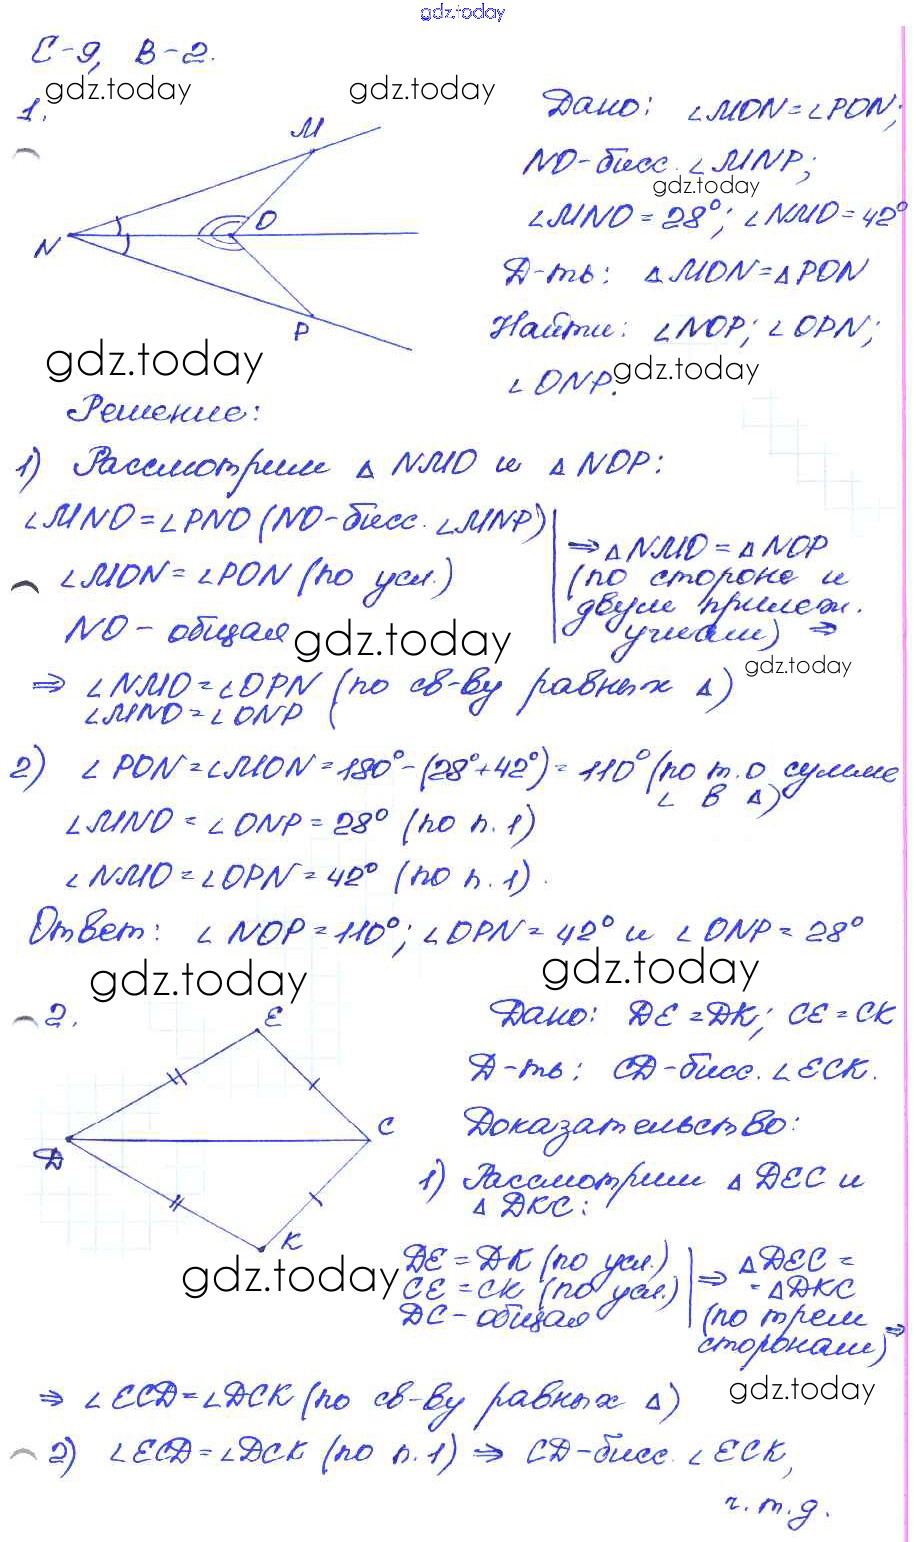 gdz.today
С-9, В-2.
gdz.today gdz.today
1.
M
O
N
P
Дано: ∠MON=∠PON;
NO-бисс. ∠MNP;
gdz.today
∠MNO=28°; ∠NMO=42°
Д-ть: △MON=△PON
Найти: ∠NOP; ∠OPN;
∠ONP.
gdz.today gdz.today
Решение:
1) Рассмотрим △NMO и △NOP:
∠MNO=∠PNO (NO-бисс. ∠MNP)
∠MON=∠PON (по усл.)
NO-общая
gdz.today
⇒ △NMO=△NOP
(по стороне и
двум прилеж.
углам) ⇒
gdz.today
⇒ ∠NMO=∠OPN (по св-ву равных △)
∠MNO=∠ONP (
2) ∠PON=∠MON=180°-(28°+42°)=110° (по т. о сумме
∠ в △)
∠MNO=∠ONP=28° (по п.1)
∠NMO=∠OPN=42° (по п.1).
Ответ: ∠NOP=110°; ∠OPN=42° и ∠ONP=28°
gdz.today gdz.today
2.
E
C
D
K
Дано: DE=DK; CE=CK
Д-ть: CD-бисс. ∠ECK.
Доказательство:
1) Рассмотрим △DEC и
△DKC:
gdz.today
DE=DK (по усл.)
CE=CK (по усл.)
DC-общая
⇒ △DEC=
=△DKC
(по трем
сторонам) ⇒
gdz.today
⇒ ∠ECD=∠DCK (по св-ву равных △)
2) ∠ECD=∠DCK (по п.1) ⇒ CD-бисс. ∠ECK,
ч.т.д.